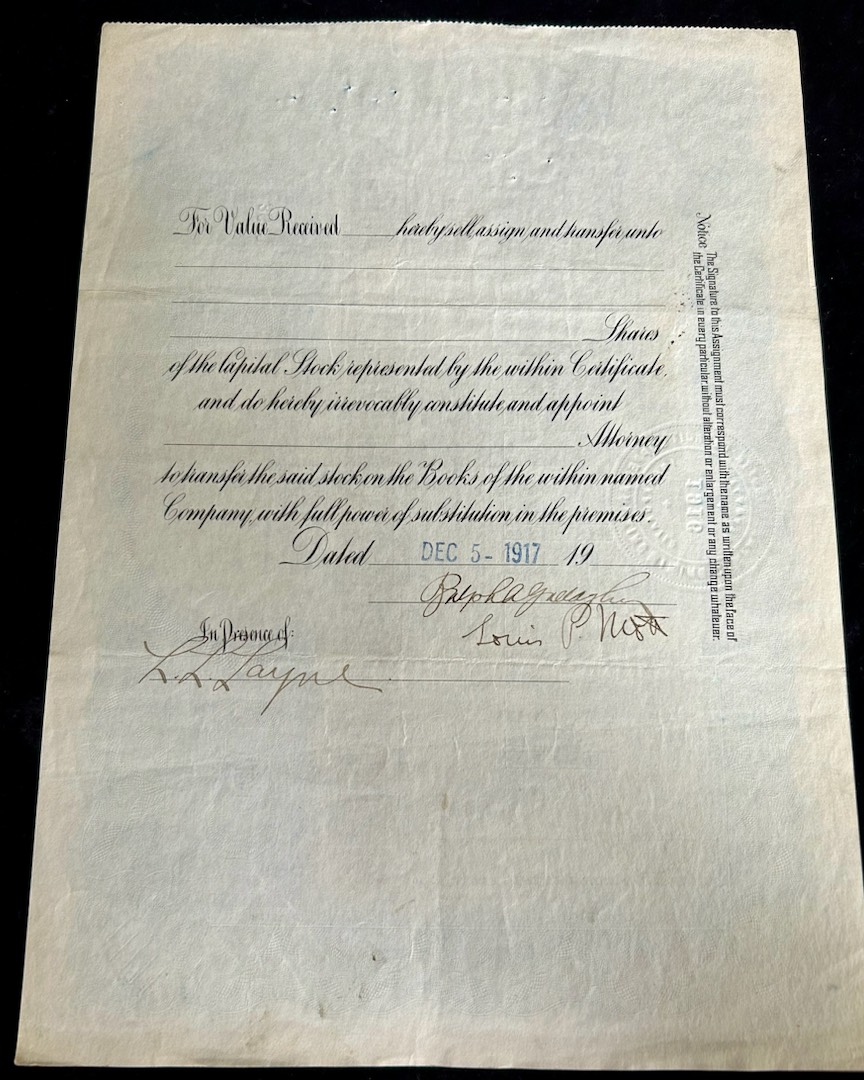 For Value Received hereby sell, assign, and transfer, unto
Shares
of the Capital Stock represented by the within Certificate,
and do hereby irrevocably constitute and appoint
Attorney
to transfer the said stock on the Books of the within named
Company, with full power of substitution in the premises.
Dated DEC 5- 1917 19
Ralph A
Louis P. Mott
In Presence of:
L. L. Layne
Notice The Signature to this Assignment must correspond with the name as written upon the face of
the Certificate in every particular without alteration or enlargement or any change whatever.
1916